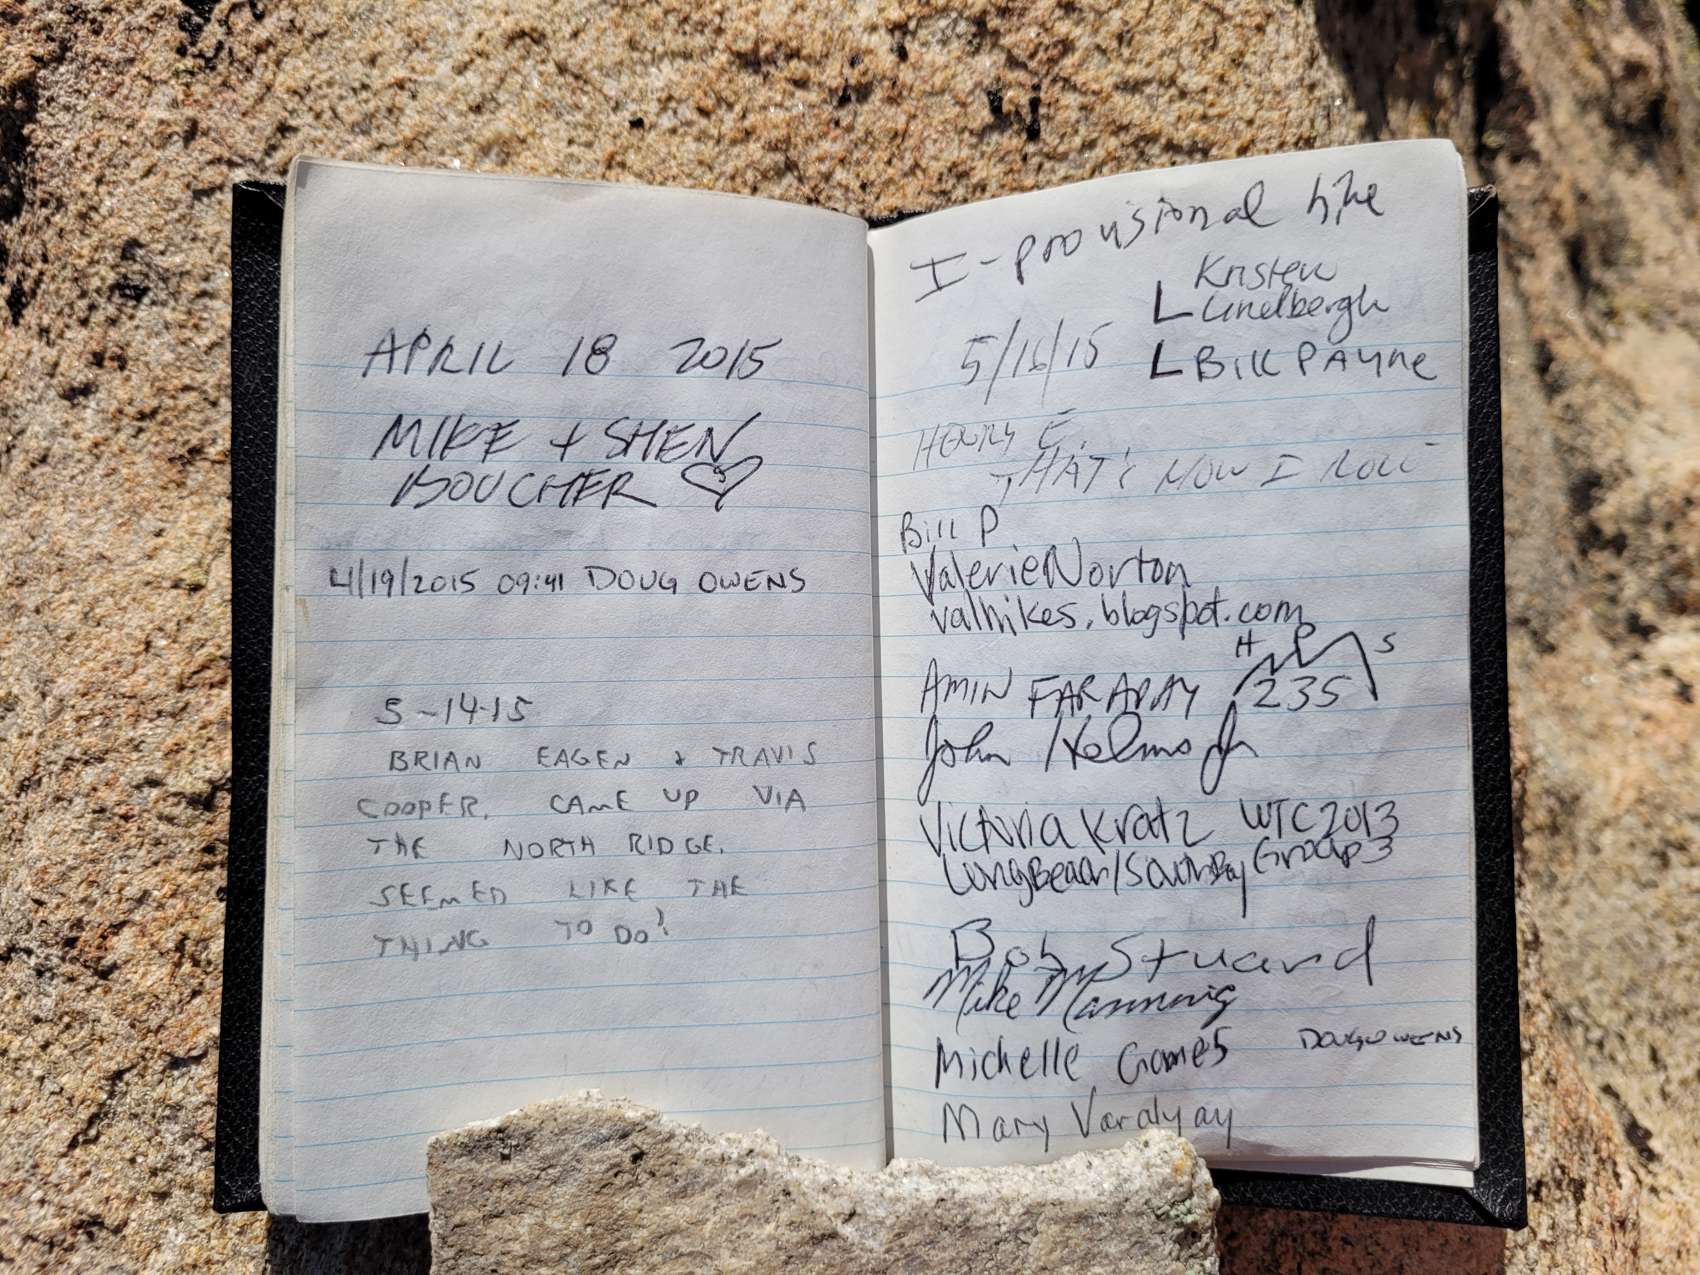 APRIL 18 2015
MIKE + SHEN
BOUCHER
4/19/2015 09:41 DOUG OWENS
5-14-15
BRIAN EAGEN & TRAVIS
COOPER. CAME UP VIA
THE NORTH RIDGE.
SEEMED LIKE THE
THING TO DO!
I-provisional hike
Kristen
L Lindbergh
5/16/15 L Bill PAYNE
HENRY E.
THAT'S HOW I ROLL
Bill P
Valerie Norton
valhikes.blogspot.com
H P S
AMIN FARADAY 235
John Jr
Victoria Kratz WTC 2013
Long Beach/South Bay Group 3
Bob Stuard
Mike Manning
Michelle Games DOUG OWENS
Mary Varalyay